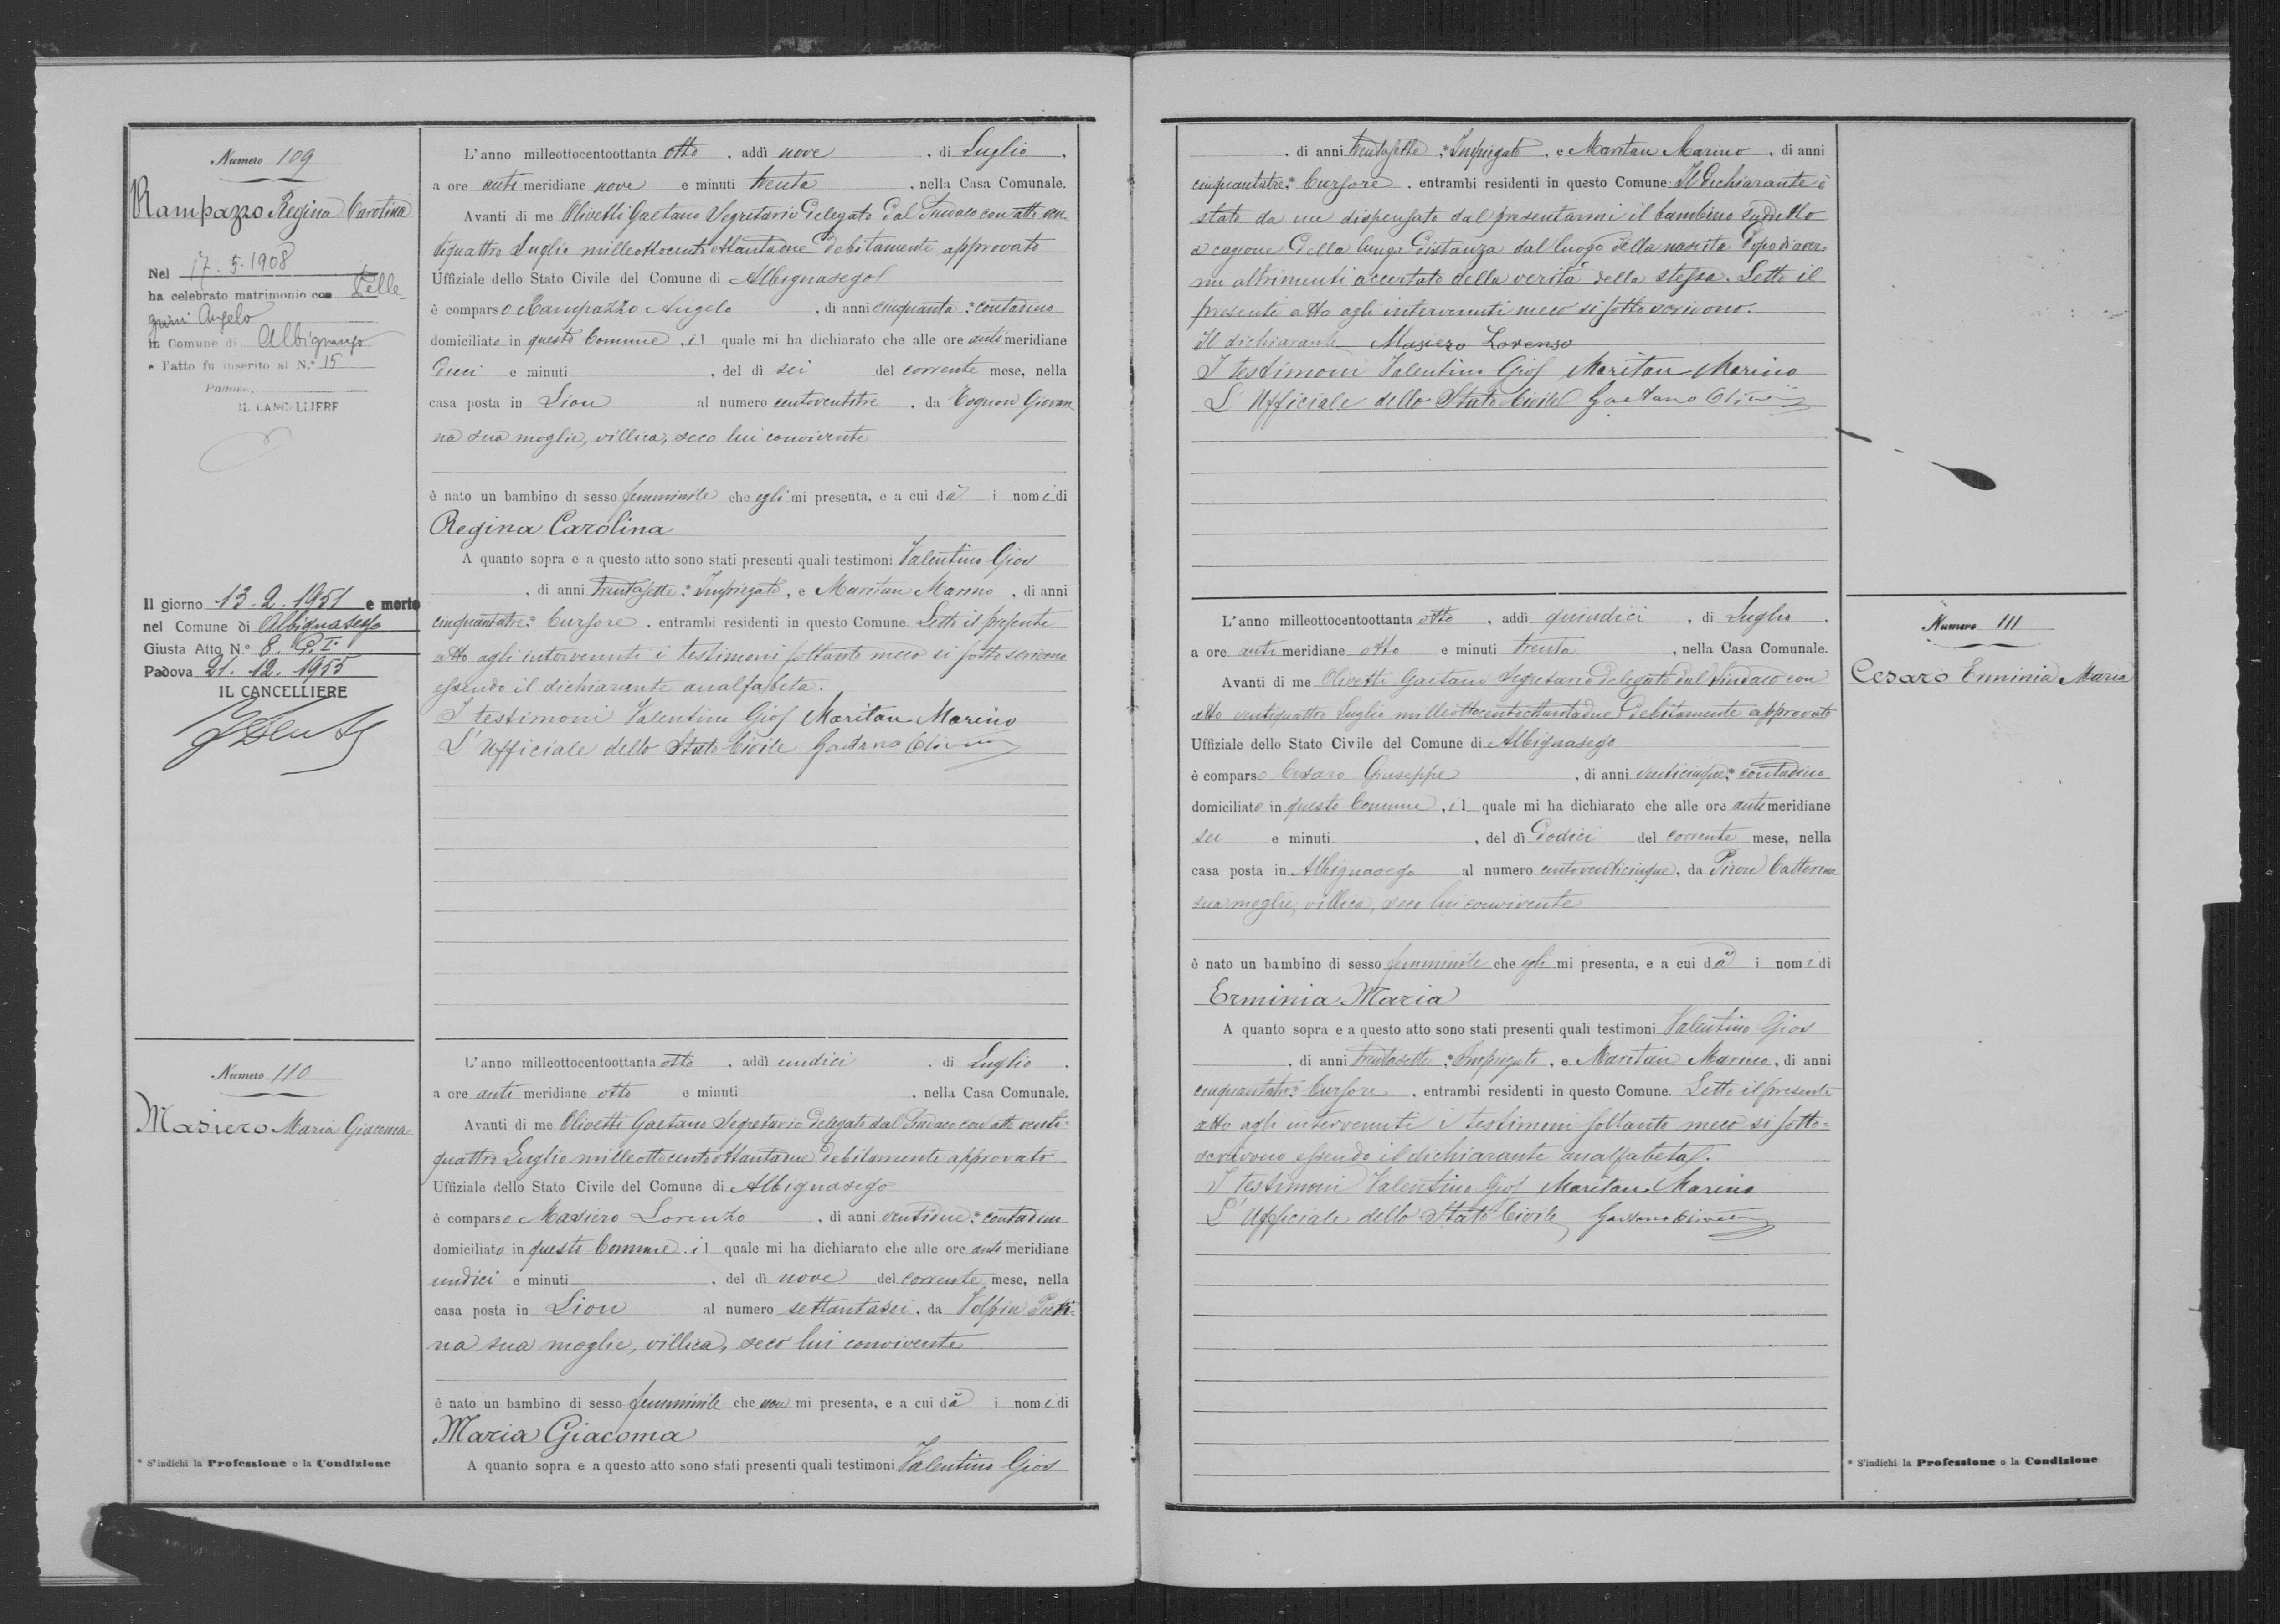 Numero 109
Rampazzo Regina Carolina
Nel 17.5.1908
ha celebrato matrimonio con Pelle-
grini Angelo
in Comune di Albignasego
e l'atto fu inserito al N.° 15
Padova,
IL CANCELLIERE
Il giorno 13.2.1951 e morto
nel Comune di Albignasego
Giusta Atto N.° 8. P. I.
Padova 21.12.1955
IL CANCELLIERE
L'anno milleottocentoottanta otto, addì nove, di Luglio,
a ore anti meridiane nove e minuti trenta, nella Casa Comunale.
Avanti di me Olivetti Gaetano Segretario delegato dal Sindaco con atto ven-
tiquattro Luglio milleottocentoottantadue debitamente approvato
Uffiziale dello Stato Civile del Comune di Albignasego
è comparso Rampazzo Angelo, di anni cinquanta * contadino
domiciliato in questo Comune, il quale mi ha dichiarato che alle ore anti meridiane
dieci e minuti, del dì sei del corrente mese, nella
casa posta in Lion al numero centoventitre, da Cognon Giovan
na sua moglie, villica, seco lui convivente
è nato un bambino di sesso femminile che egli mi presenta, e a cui dà i nomi di
Regina Carolina
A quanto sopra e a questo atto sono stati presenti quali testimoni Valentino Gios
, di anni trentasette * Impiegato, e Maritan Marino, di anni
cinquantatre * Cursore, entrambi residenti in questo Comune. Letto il presente
atto agli intervenuti i testimoni soltanto meco si sottoscrivono
essendo il dichiarante analfabeta.
I testimoni Valentino Gios Maritan Marino
L'Ufficiale dello Stato Civile Gaetano Olivetti
Numero 110
Masiero Maria Giacoma
L'anno milleottocentoottanta otto, addì undici, di Luglio,
a ore anti meridiane otto e minuti, nella Casa Comunale.
Avanti di me Olivetti Gaetano Segretario delegato dal Sindaco con atto venti-
quattro Luglio milleottocentoottantadue debitamente approvato
Uffiziale dello Stato Civile del Comune di Albignasego
è comparso Masiero Lorenzo, di anni ventidue * contadino
domiciliato in questo Comune, il quale mi ha dichiarato che alle ore anti meridiane
undici e minuti, del dì nove del corrente mese, nella
casa posta in Lion al numero settantasei, da Volpin
na sua moglie, villica, seco lui convivente
è nato un bambino di sesso femminile che non mi presenta, e a cui dà i nomi di
Maria Giacoma
A quanto sopra e a questo atto sono stati presenti quali testimoni Valentino Gios
* S'indichi la Professione o la Condizione
, di anni trentasette * Impiegato, e Maritan Marino, di anni
cinquantatre * Cursore, entrambi residenti in questo Comune. Il dichiarante è
stato da me dispensato dal presentarmi il bambino suddetto
a cagione della lunga distanza dal luogo della nascita dopo di aver
mi altrimenti accertato della verità della stessa. Letto il
presente atto agli intervenuti meco si sottoscrivono.
Il dichiarante Masiero Lorenso
I testimoni Valentino Gios Maritan Marino
L'Ufficiale dello Stato Civile Gaetano Olivetti
L'anno milleottocentoottanta otto, addì quindici, di Luglio,
a ore anti meridiane otto e minuti trenta, nella Casa Comunale.
Avanti di me Olivetti Gaetano Segretario delegato dal Sindaco con
atto ventiquattro Luglio milleottocentoottantadue debitamente approvato
Uffiziale dello Stato Civile del Comune di Albignasego
è comparso Cesaro Giuseppe, di anni venticinque * contadino
domiciliato in questo Comune, il quale mi ha dichiarato che alle ore anti meridiane
sei e minuti, del dì dodici del corrente mese, nella
casa posta in Albignasego al numero centoventicinque, da Piron Catterina
sua moglie, villica, seco lui convivente
è nato un bambino di sesso femminile che egli mi presenta, e a cui dà i nomi di
Erminia Maria
A quanto sopra e a questo atto sono stati presenti quali testimoni Valentino Gios
, di anni trentasette * Impiegato, e Maritan Marino, di anni
cinquantatre * Cursore, entrambi residenti in questo Comune. Letto il presente
atto agli intervenuti i testimoni soltanto meco si sotto=
scrivono essendo il dichiarante analfabeta.
I testimoni Valentino Gios Maritan Marino
L'Ufficiale dello Stato Civile Gaetano Olivetti
Numero 111
Cesaro Erminia Maria
* S'indichi la Professione o la Condizione